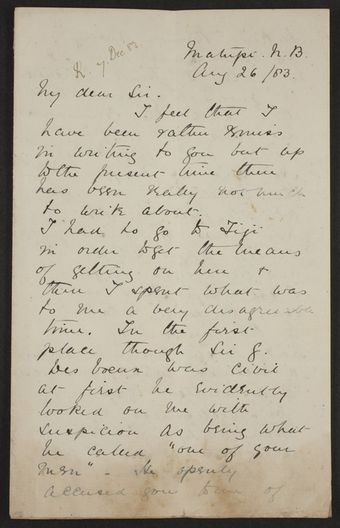 R. 7. Dec 83
Matupi. N. B.
Aug 26/83.
My dear Sir.
I feel that I
have been rather remiss
in writing to you but up
to the present time there
has been really not much
to write about.
I had to go to Fiji
in order to get the means
of getting on here &
there I spent what was
to me a very disagreeable
time. In the first
place though Sir G.
Des Voeux was civil
at first he evidently
looked on me with
suspicion as being what
he called "one of your
men" - He openly
accused you to me of